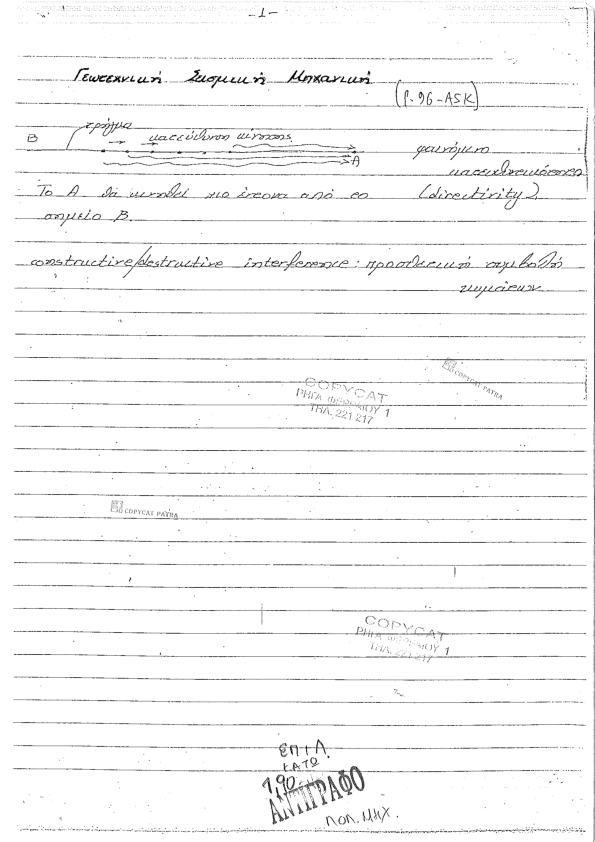 -1-
Γεωτεχνική Σεισμική Μηχανική
(P.96-ASK)
ρήγμα
B
κατεύθυνση κίνησης
A
φαινόμενο
κατευθυντικότητας
Το Α θα κινηθεί πιο έντονα από το
(directivity)
σημείο Β.
constructive/destructive interference: προσθετική συμβολή
κυμάτων
COPYCAT PATRA
COPYCAT
ΡΗΓΑ ΦΕΡΑΙΟΥ 1
ΤΗΛ. 221 217
COPYCAT PATRA
COPYCAT
ΡΗΓΑ ΦΕΡΑΙΟΥ 1
ΤΗΛ. 221 217
ΕΠΙΛ
ΚΑΤΩ
1,90
ΑΝΤΙΓΡΑΦΟ
ΠΟΛ. ΜΗΧ.